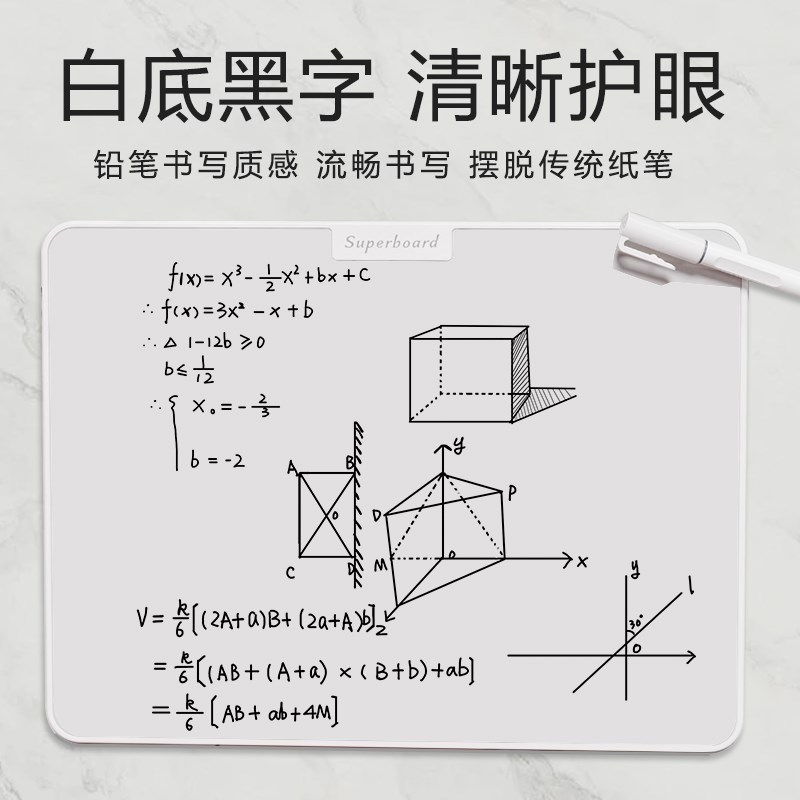 白底黑字 清晰护眼
铅笔书写质感 流畅书写 摆脱传统纸笔
Superboard
f(x)= x³-1/2x²+bx+c
∴ f(x)=3x²-x+b
∴ △ 1-12b ≥0
b≤ 1/12
∴ { x₀=-2/3
b=-2
A B
O
C D
y
P
D
M o x
z
y l
30°
O
V= k/6[(2A+a)B+(2a+A)b]
= k/6[(AB+(A+a)×(B+b)+ab]
= k/6[AB+ab+4M]